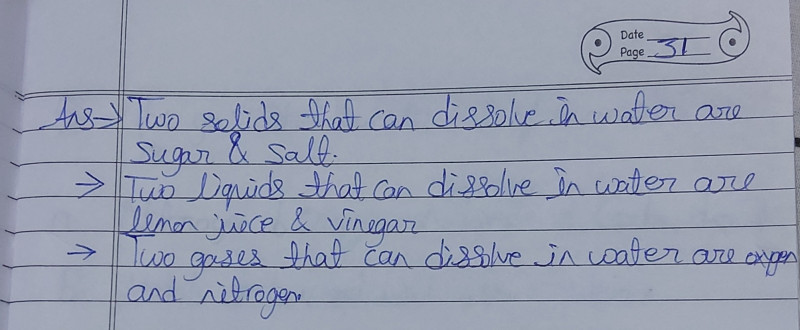 Date
Page 31
Ans→ Two solids that can dissolve in water are
Sugar & Salt.
→ Two liquids that can dissolve in water are
lemon juice & vinegar
→ Two gases that can dissolve in water are oxygen
and nitrogen.